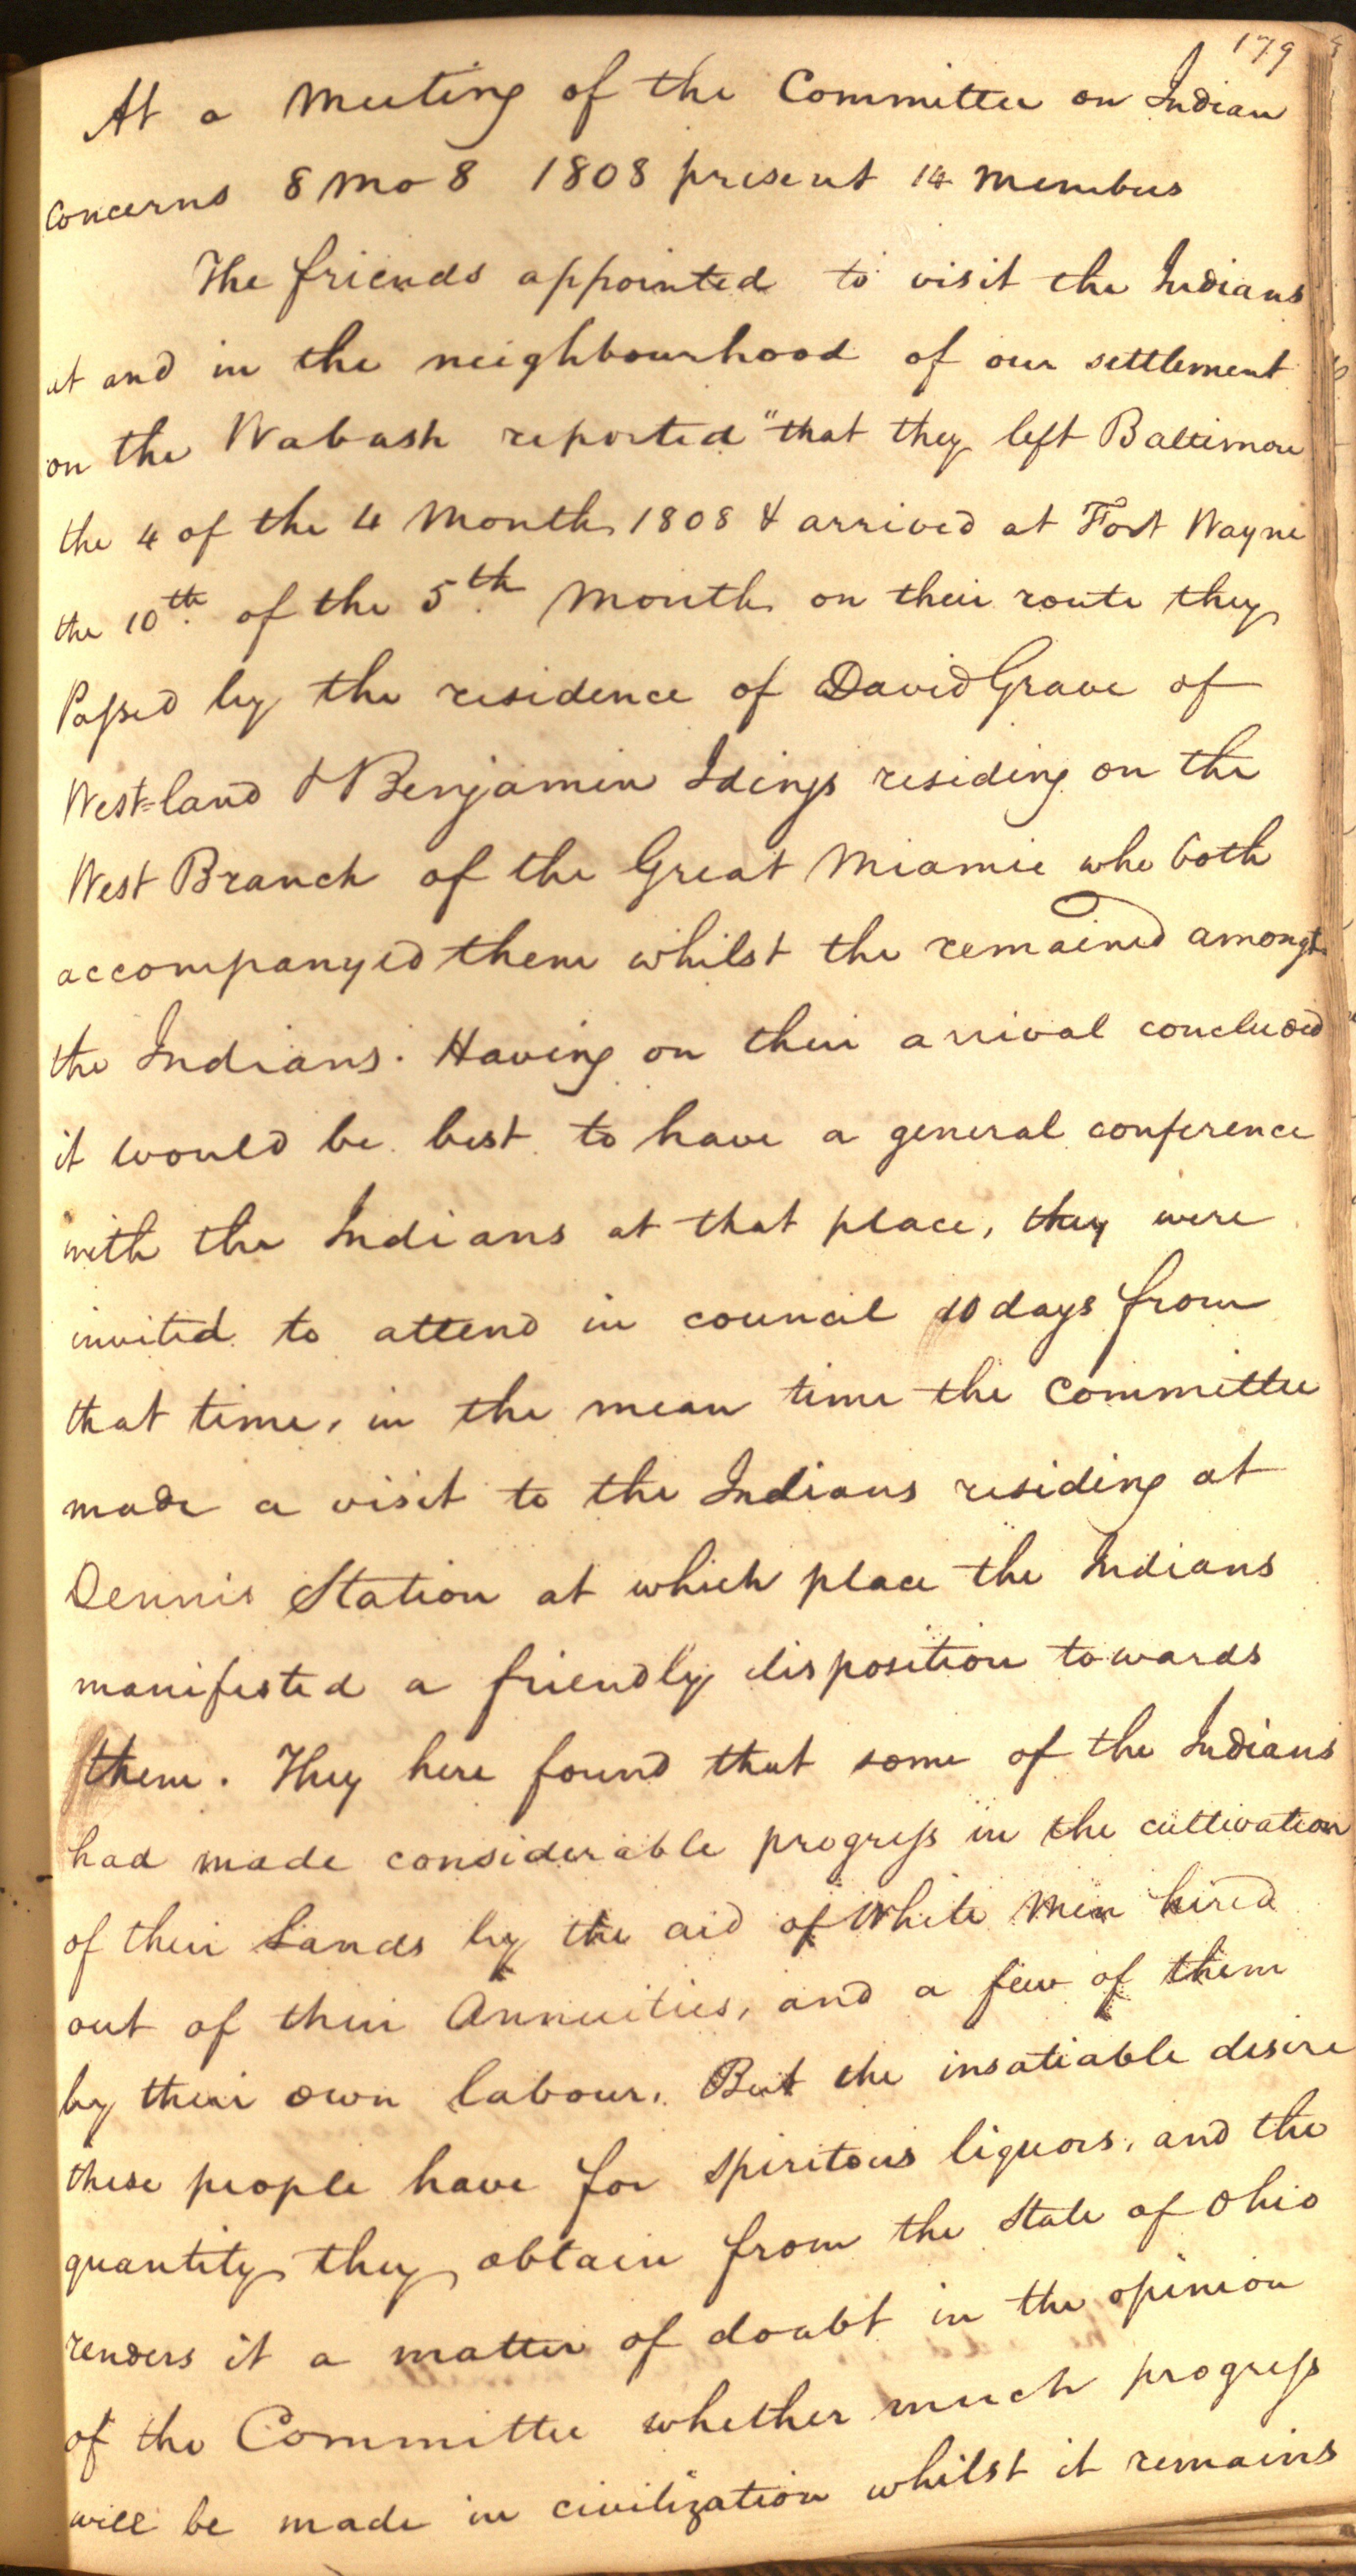 179
At a Meeting of the Committee on Indian
Concerns 8 Mo 8 1808 present 14 Members
The friends appointed to visit the Indians
at and in the neighbourhood of our settlement
on the Wabash reported "that they left Baltimore
the 4 of the 4 Month 1808 & arrived at Fort Wayne
the 10th of the 5th Month on their route they
Passed by the residence of David Grave of
West=land & Benjamin Idings residing on the
West Branch of the Great Miamie who both
accompanyed them whilst the remained amongt
the Indians. Having on their arrival concluded
it would be best to have a general conference
with the Indians at that place, they were
invited to attend in council 10 days from
that time, in the mean time the Committee
made a visit to the Indians residing at
Dennis Station at which place the Indians
manifested a friendly disposition towards
them. They here found that some of the Indians
had made considerable progress in the cultivation
of their Lands by the aid of White Men hired
out of their Annuities, and a few of them
by their own labour. But the insatiable desire
these people have for spiritous liquors, and the
quantity they obtain from the State of Ohio
renders it a matter of doubt in the opinion
of the Committee whether much progress
will be made in civilization whilst it remains